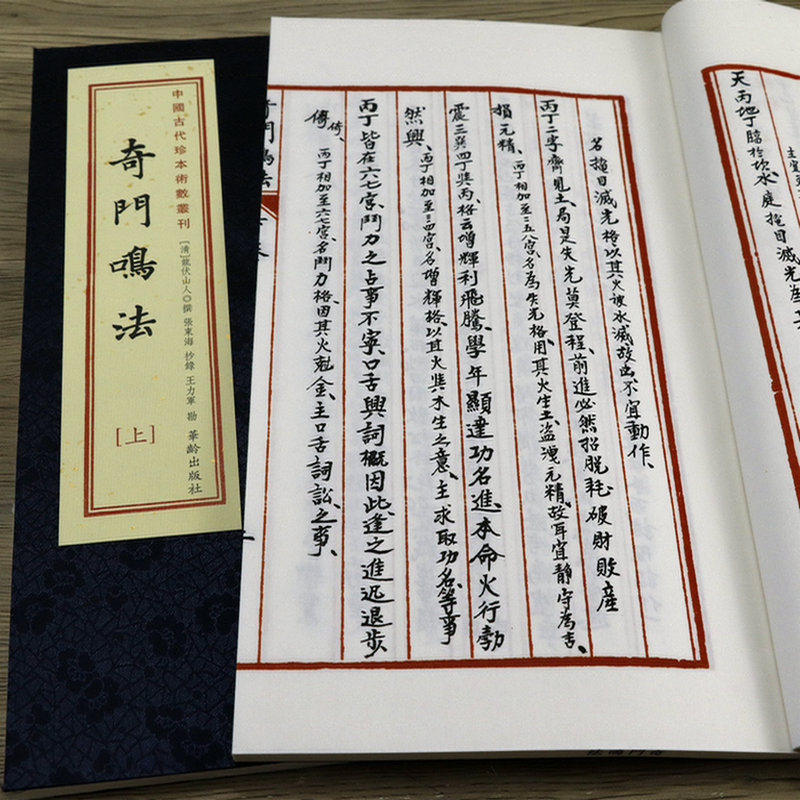 中國古代珍本術數叢刊
奇門鳴法
[清]龍伏山人◎撰 張東海 抄錄 王力軍 勘 華齡出版社
[上]
天丙地丁臨於坎水處掩目滅光
名掩目滅光格以其火被水滅故凶不宜動作、
丙丁二字齊見土、局是失光莫登程、前進必然招脫耗、破財敗產
損元精、丙丁相加至二五八宮、名為失光格、用其火生土、盜洩元精、故耳宜靜守為吉、
震三巽四丁奘丙、格云增輝利飛騰、學年顯達功名進、本命火行勃
然興、丙丁相加至三四宮、名增輝格、以其火奘木生之意、主求取功名等事
丙丁皆在六七宮、鬥力之占事不寧、口舌興詞概因此、逢之進迟退步
傳、丙丁相加至六七宮、名鬥力格、因其火尅金、主口舌詞訟、之事、
奇門鳴法